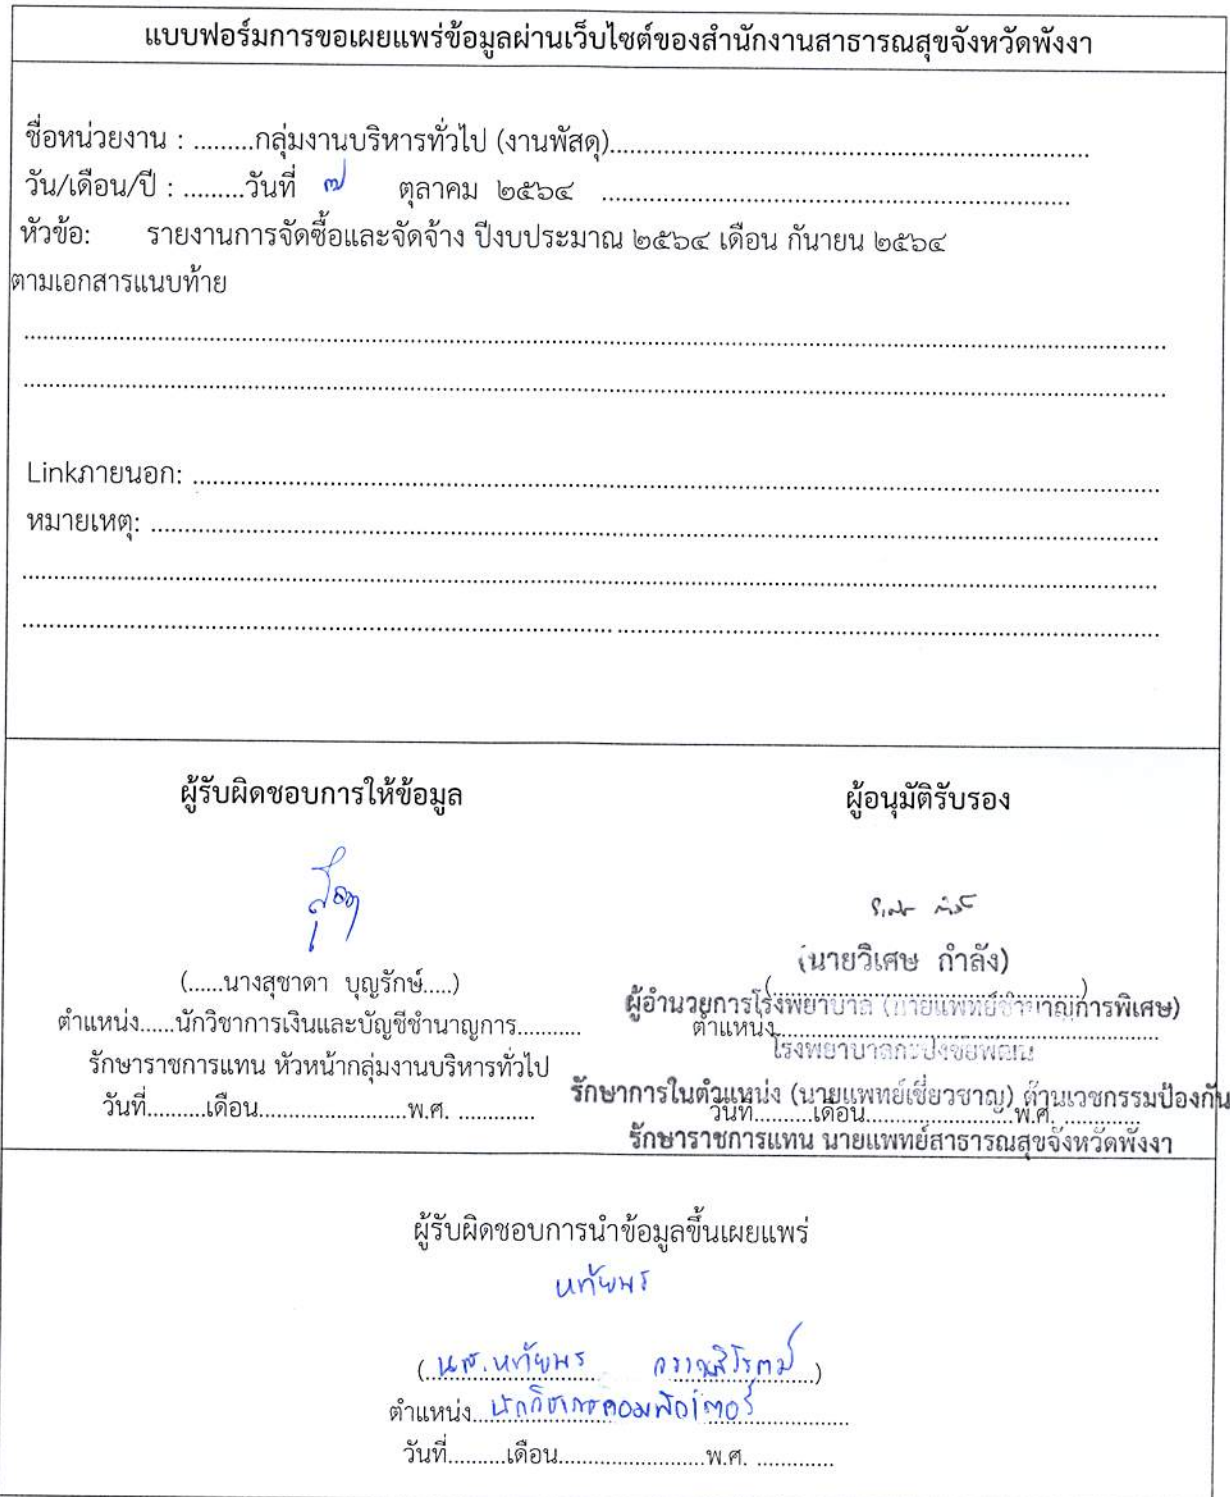 แบบฟอร์มการขอเผยแพร่ข้อมูลผ่านเว็บไซต์ของสำนักงานสาธารณสุขจังหวัดพังงา
ชื่อหน่วยงาน : .........กลุ่มงานบริหารทั่วไป (งานพัสดุ)........................................................................
วัน/เดือน/ปี : .........วันที่ ๗ ตุลาคม ๒๕๖๔ ......................................................................
หัวข้อ: รายงานการจัดซื้อและจัดจ้าง ปีงบประมาณ ๒๕๖๔ เดือน กันายน ๒๕๖๔
ตามเอกสารแนบท้าย
Linkภายนอก: ........................................................................
หมายเหตุ: ........................................................................
ผู้รับผิดชอบการให้ข้อมูล
(......นางสุชาดา บุญรักษ์.....)
ตำแหน่ง......นักวิชาการเงินและบัญชีชำนาญการ...........
รักษาราชการแทน หัวหน้ากลุ่มงานบริหารทั่วไป
วันที่..........เดือน..........................พ.ศ. .............
ผู้อนุมัติรับรอง
(นายวิเศษ กำลัง)
(......................................................)
ผู้อำนวยการโรงพยาบาล (นายแพทย์ชำนาญการพิเศษ)
ตำแหน่ง..................................................................
โรงพยาบาลกะปงชัยพัฒน์
รักษาการในตำแหน่ง (นายแพทย์เชี่ยวชาญ) ด้านเวชกรรมป้องกัน
วันที่..........เดือน..........................พ.ศ. .............
รักษาราชการแทน นายแพทย์สาธารณสุขจังหวัดพังงา
ผู้รับผิดชอบการนำข้อมูลขึ้นเผยแพร่
หทัยพร
(น.ส.หทัยพร )
ตำแหน่ง นักวิชาการคอมพิวเตอร์
วันที่..........เดือน..........................พ.ศ. .............